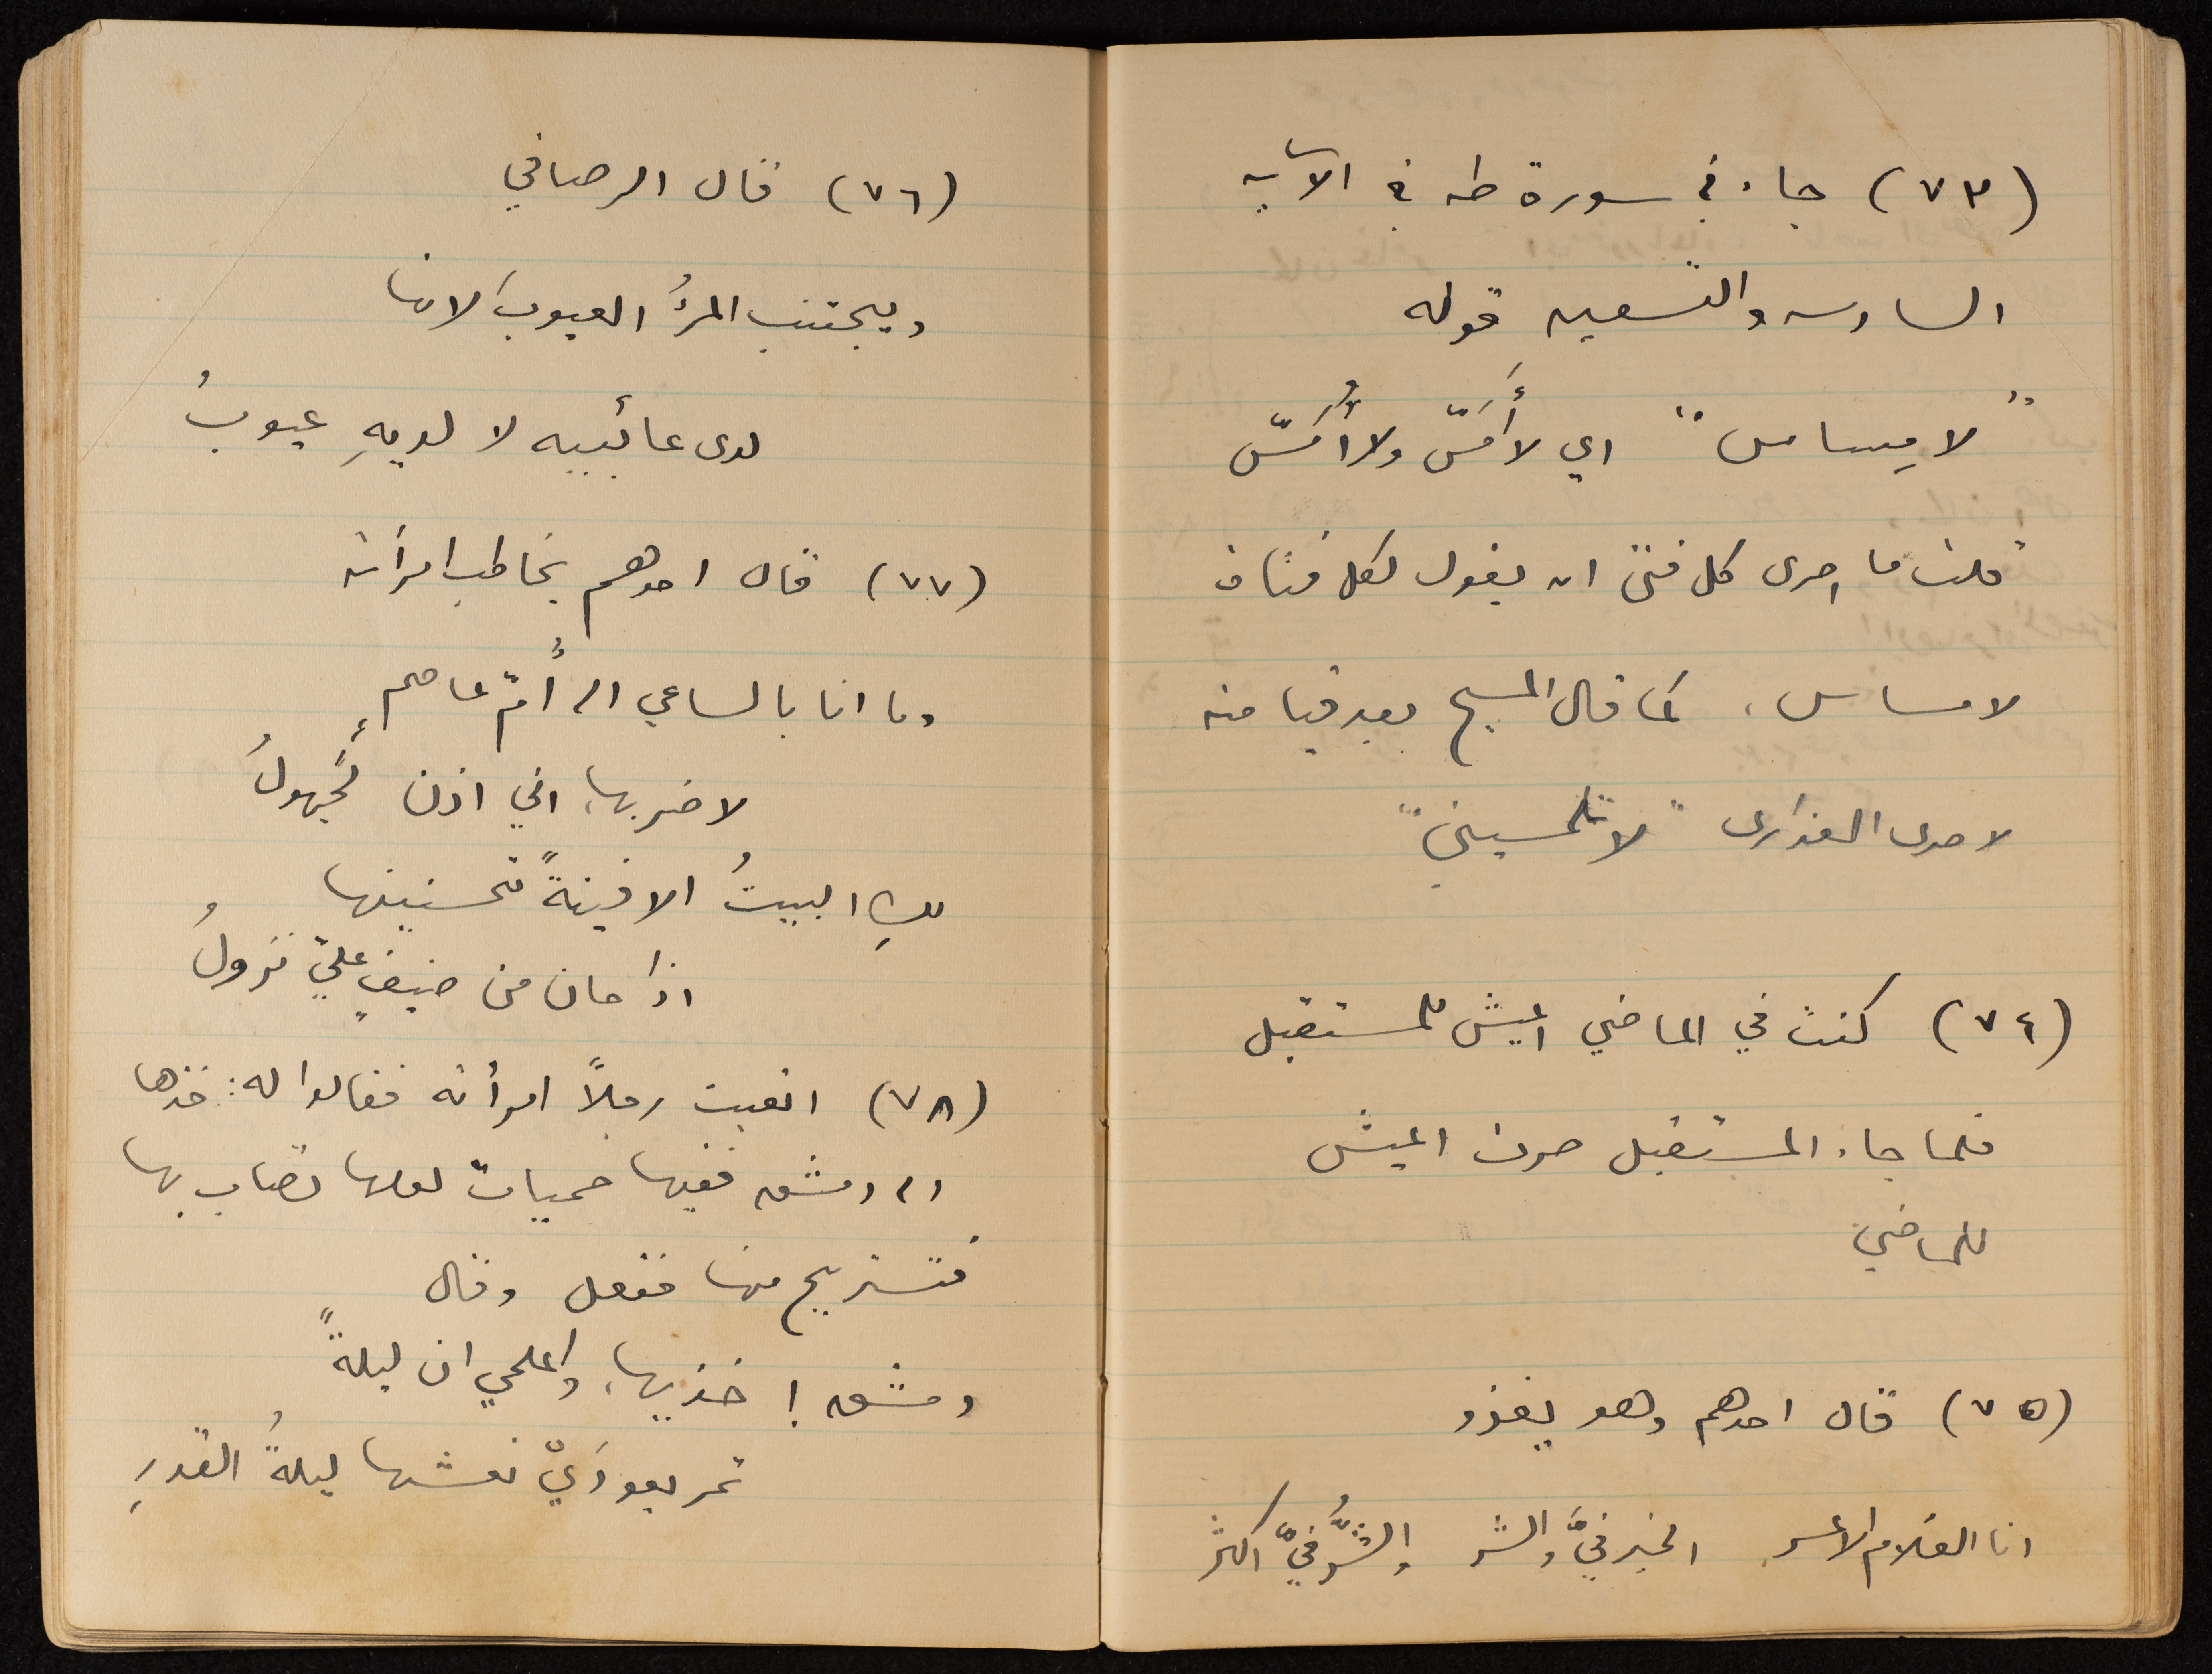 (٧٣) جاء في سورة طه في الآية
السادسه والتسعين قوله
"لا مِساس" اي لا أَمَسّ ولا أُمَسّ
قلت ما احرى كل فتى ان يقول لكل فتاة
لا مساس، كما قال المسيح بعد قيامته
لاحدى العذارى "لا تلمسيني"
(٧٤) كنت في الماضي اعيش للمستقبل
فلما جاء المستقبل صرت اعيش
للماضي
(٧٥) قال احدهم وهو يغزو
انا الغلام الاعسر الخير فيَّ والشر والشرُّ فيَّ اكثر
(٧٦) قال الرصافي
ويجتنب المرءُ العيوبَ لانها
لدى عائبيه لا لديهِ عيوبُ
(٧٧) قال احدهم يخاطب امرأته
وما انا بالساعي الى أُمّ عاصمٍ
لاضربها، اني اذن لَجهولُ
لكِ البيتُ الا فينةً تحسنينها
اذا حان من ضيفٍ عليّ نزولُ
(٧٨) اتعبت رجلاً امرأته فقالوا له: خذها
الى دمشق ففيها حميات لعلها تصاب بها
فتستريح منها ففعل وقال
دمشق! خذيها، واعلمي ان ليلةً
تمر بعودَيْ نعشها ليلةُ القدرِ